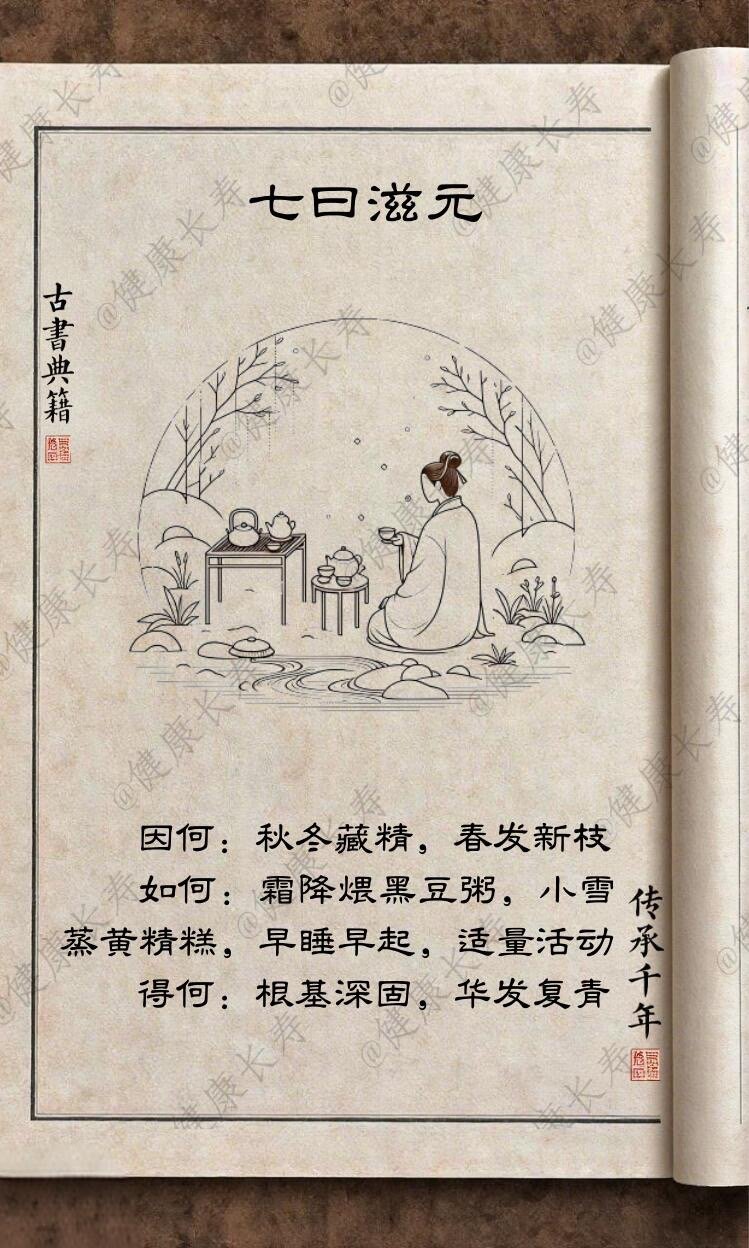 七日滋元
古書典籍
因何：秋冬藏精，春发新枝
如何：霜降煨黑豆粥，小雪
蒸黄精糕，早睡早起，适量活动
得何：根基深固，华发复青
传承千年
@健康长寿